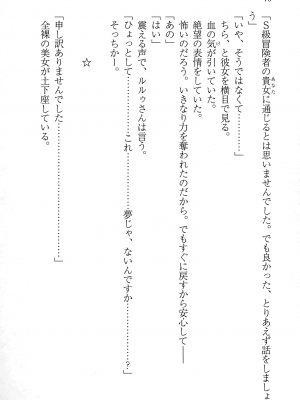 「Ｓ級冒険者の貴女に通じるとは思いませんでした。でも良かった、とりあえず話をしましょ
う」
「いや、そうではなくて……」
ちら、と彼女を横目で見る。
血の気が引いていた。
絶望の表情をしていた。
怖いのだろう。いきなり力を奪われたのだから。でもすぐに戻すから安心して――
「あの」
「はい」
震える声で、ルルゥさんは言う。
「ひょっとして………これ………夢じゃ、ないんですか…………？」
そっちかー。
☆
「申し訳ありませんでした…………………………」
全裸の美女が土下座している。